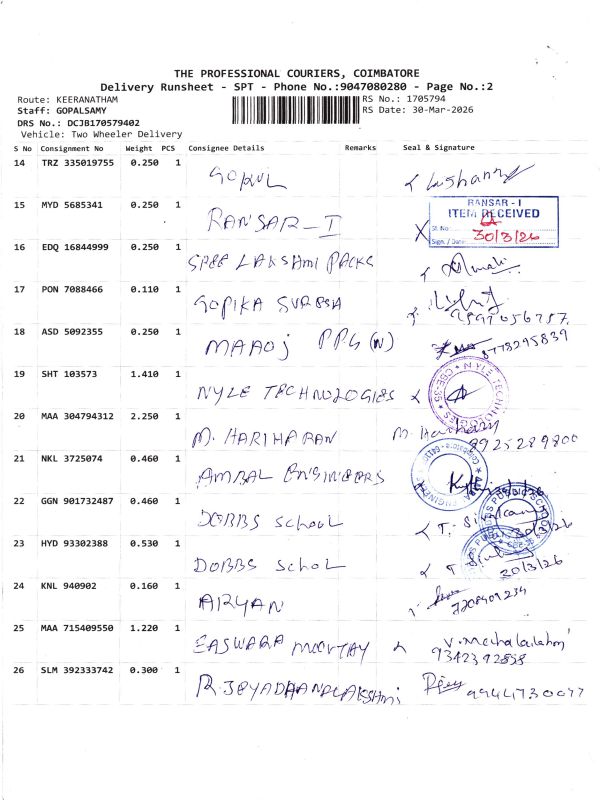 THE PROFESSIONAL COURIERS, COIMBATORE
Delivery Runsheet - SPT - Phone No.:9047080280 - Page No.:2
Route: KEERANATHAM
RS No.: 1705794
Staff: GOPALSAMY
RS Date: 30-Mar-2026
DRS No.: DCJB170579402
Vehicle: Two Wheeler Delivery
S No Consignment No Weight PCS Consignee Details Remarks Seal & Signature
14 TRZ 335019755 0.250 1 GOPUL
15 MYD 5685341 0.250 1 RANSAR-I
RANSAR - I
ITEM RECEIVED
Sl. No
Sign. / Date 30/3/26
16 EDQ 16844999 0.250 1 SREE LAKSHMI PACKS
17 PON 7088466 0.110 1 GOPIKA SURESH
18 ASD 5092355 0.250 1 MAAOJ PPG (N) 8778295839
19 SHT 103573 1.410 1 NYLE TECHNOLOGIES
NYLE TECHNOLOGIES CBE-35
20 MAA 304794312 2.250 1 M. HARIHARAN M. Hariharan 9925289800
21 NKL 3725074 0.460 1 AMBAL ENGINEERS
22 GGN 901732487 0.460 1 DOBBS School
30/3/26
23 HYD 93302388 0.530 1 DOBBS Schol
30/3/26
24 KNL 940902 0.160 1 ARYAN 7208909234
25 MAA 715409550 1.220 1 EASWARA MOORTAY
9342392858
26 SLM 392333742 0.300 1 R. JEYADHANALAKSHMI 9944730077